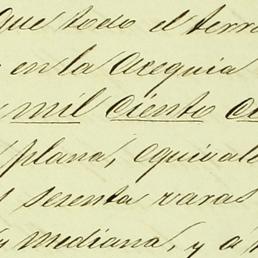 que todo el terr
en la Acequia
mil ciento c
plana, equival
sesenta varas
y mediana, y á